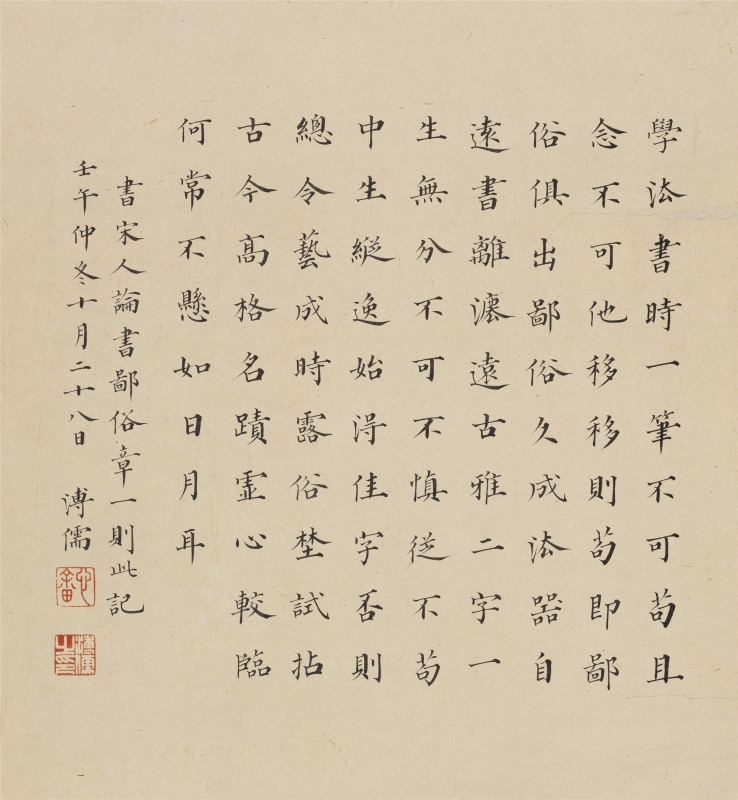 學法書時一筆不可苟且
念不可他移移則苟即鄙
俗俱出鄙俗久成法器自
遠書離瀍遠古雅二字一
生無分不可不慎從不苟
中生縱逸始得佳字否則
總令藝成時露俗埜試拈
古今高格名蹟靈心較臨
何常不懸如日月耳
書宋人論書鄙俗章一則此記
壬午仲冬十月二十八日
溥儒